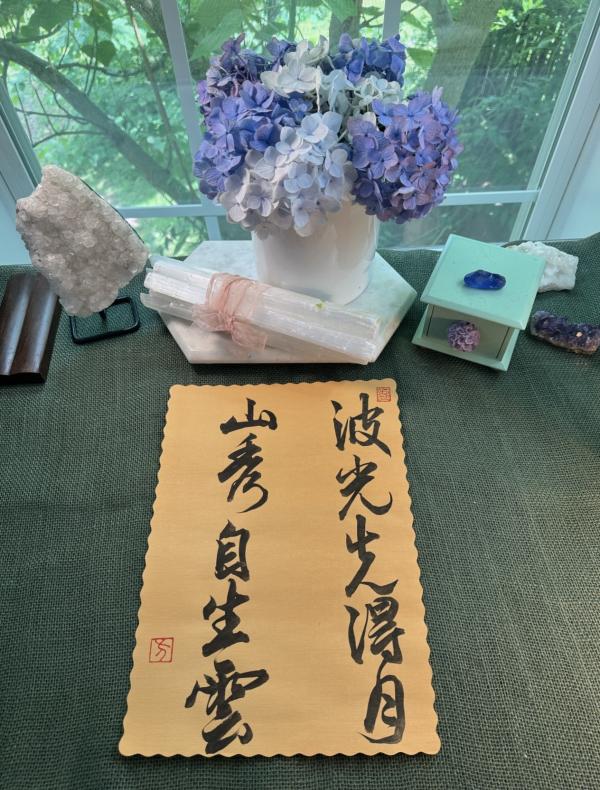 波光先得月
山秀自生雲